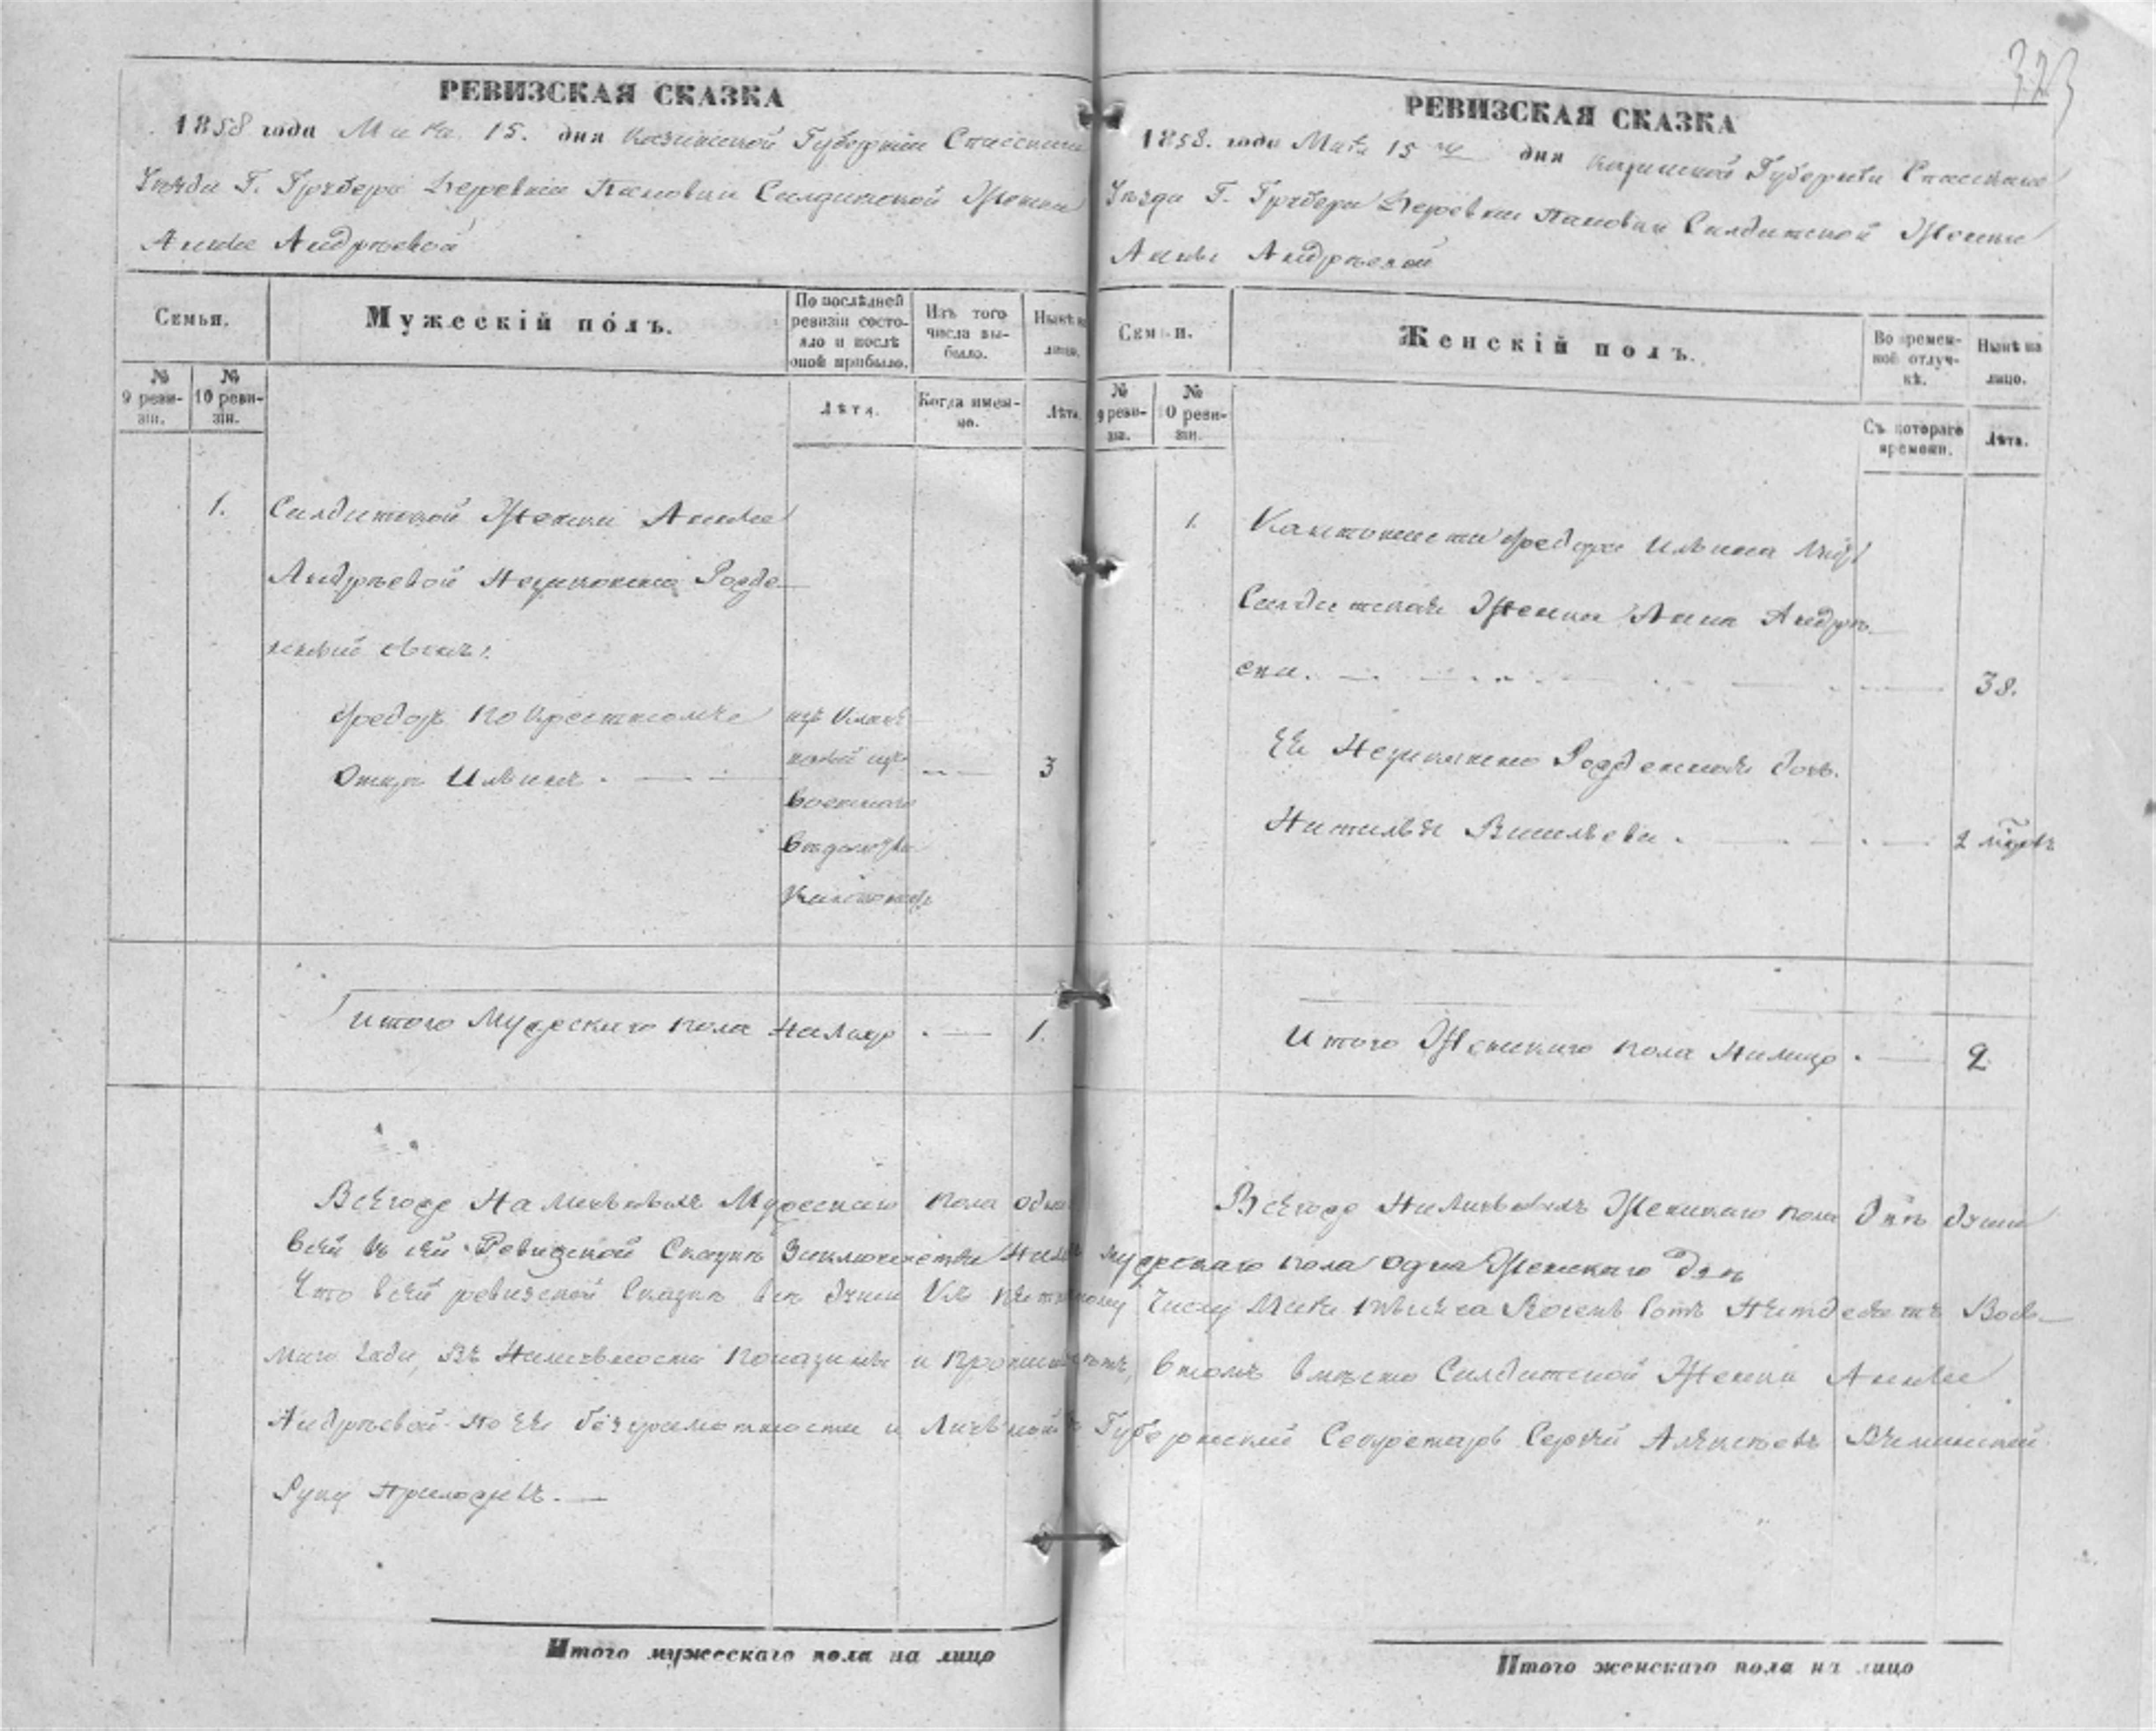 323
РЕВИЗСКАЯ СКАЗКА
1858 года Маия 15. дня Казанской Губернии Спасскаго
Уѣзда Г. Деревни Пановки Салдатской Жонки
Анны Андрѣевой
Семьи.
Мужескій полъ.
По послѣдней ревизіи состояло и послѣ оной прибыло.
Изъ того числа выбыло.
Нынѣ на лицо.
№ 9 ревизіи.
№ 10 ревизіи.
Лѣта.
Когда именно.
Лѣта.
1. Салдатской Жонки Анны
Андрѣевой Незаконно Рожде-
нный сынъ.
Федоръ по крестному
Отцу Ильинъ. 3
военнаго
вѣдомства
Итого Мужескаго пола Налицо 1.
Всегоже Наличныхъ Мужескаго пола одна
РЕВИЗСКАЯ СКАЗКА
1858. года Маия 15 го дня Казанской Губернии Спасскаго
Уѣзда Г. Деревни Пановки Салдатской Жонки
Анны Андрѣевой
Семьи.
Женскій полъ.
Во временной отлучкѣ.
Нынѣ на лицо.
№ 9 ревизіи.
№ 10 ревизіи.
Съ котораго времени.
Лѣта.
1. Кантониста Федора Ильина
Салдатская Жонка Анна Андрѣ-
ева. 38.
Ея Незаконно Рожденная дочь.
Наталья Васильева. 2
Итого Женскаго пола Налицо 2
Всегоже Наличныхъ Женскаго пола двѣ души
Ревизской Сказкѣ мужескаго пола одна Женскаго двѣ
Что въ сей ревизской Сказкѣ всѣ души числу Маия Восемь сотъ пятдесятъ Вось-
маго года, въ Наличности показаны и въ томъ вмѣсто Салдатской Жонки Анны
Андрѣевой по ея безграмотности и Личной Губернский Секретарь Сергѣй Алексѣевъ
Руку Приложилъ.
Итого мужескаго пола на лицо
Итого женскаго пола на лицо